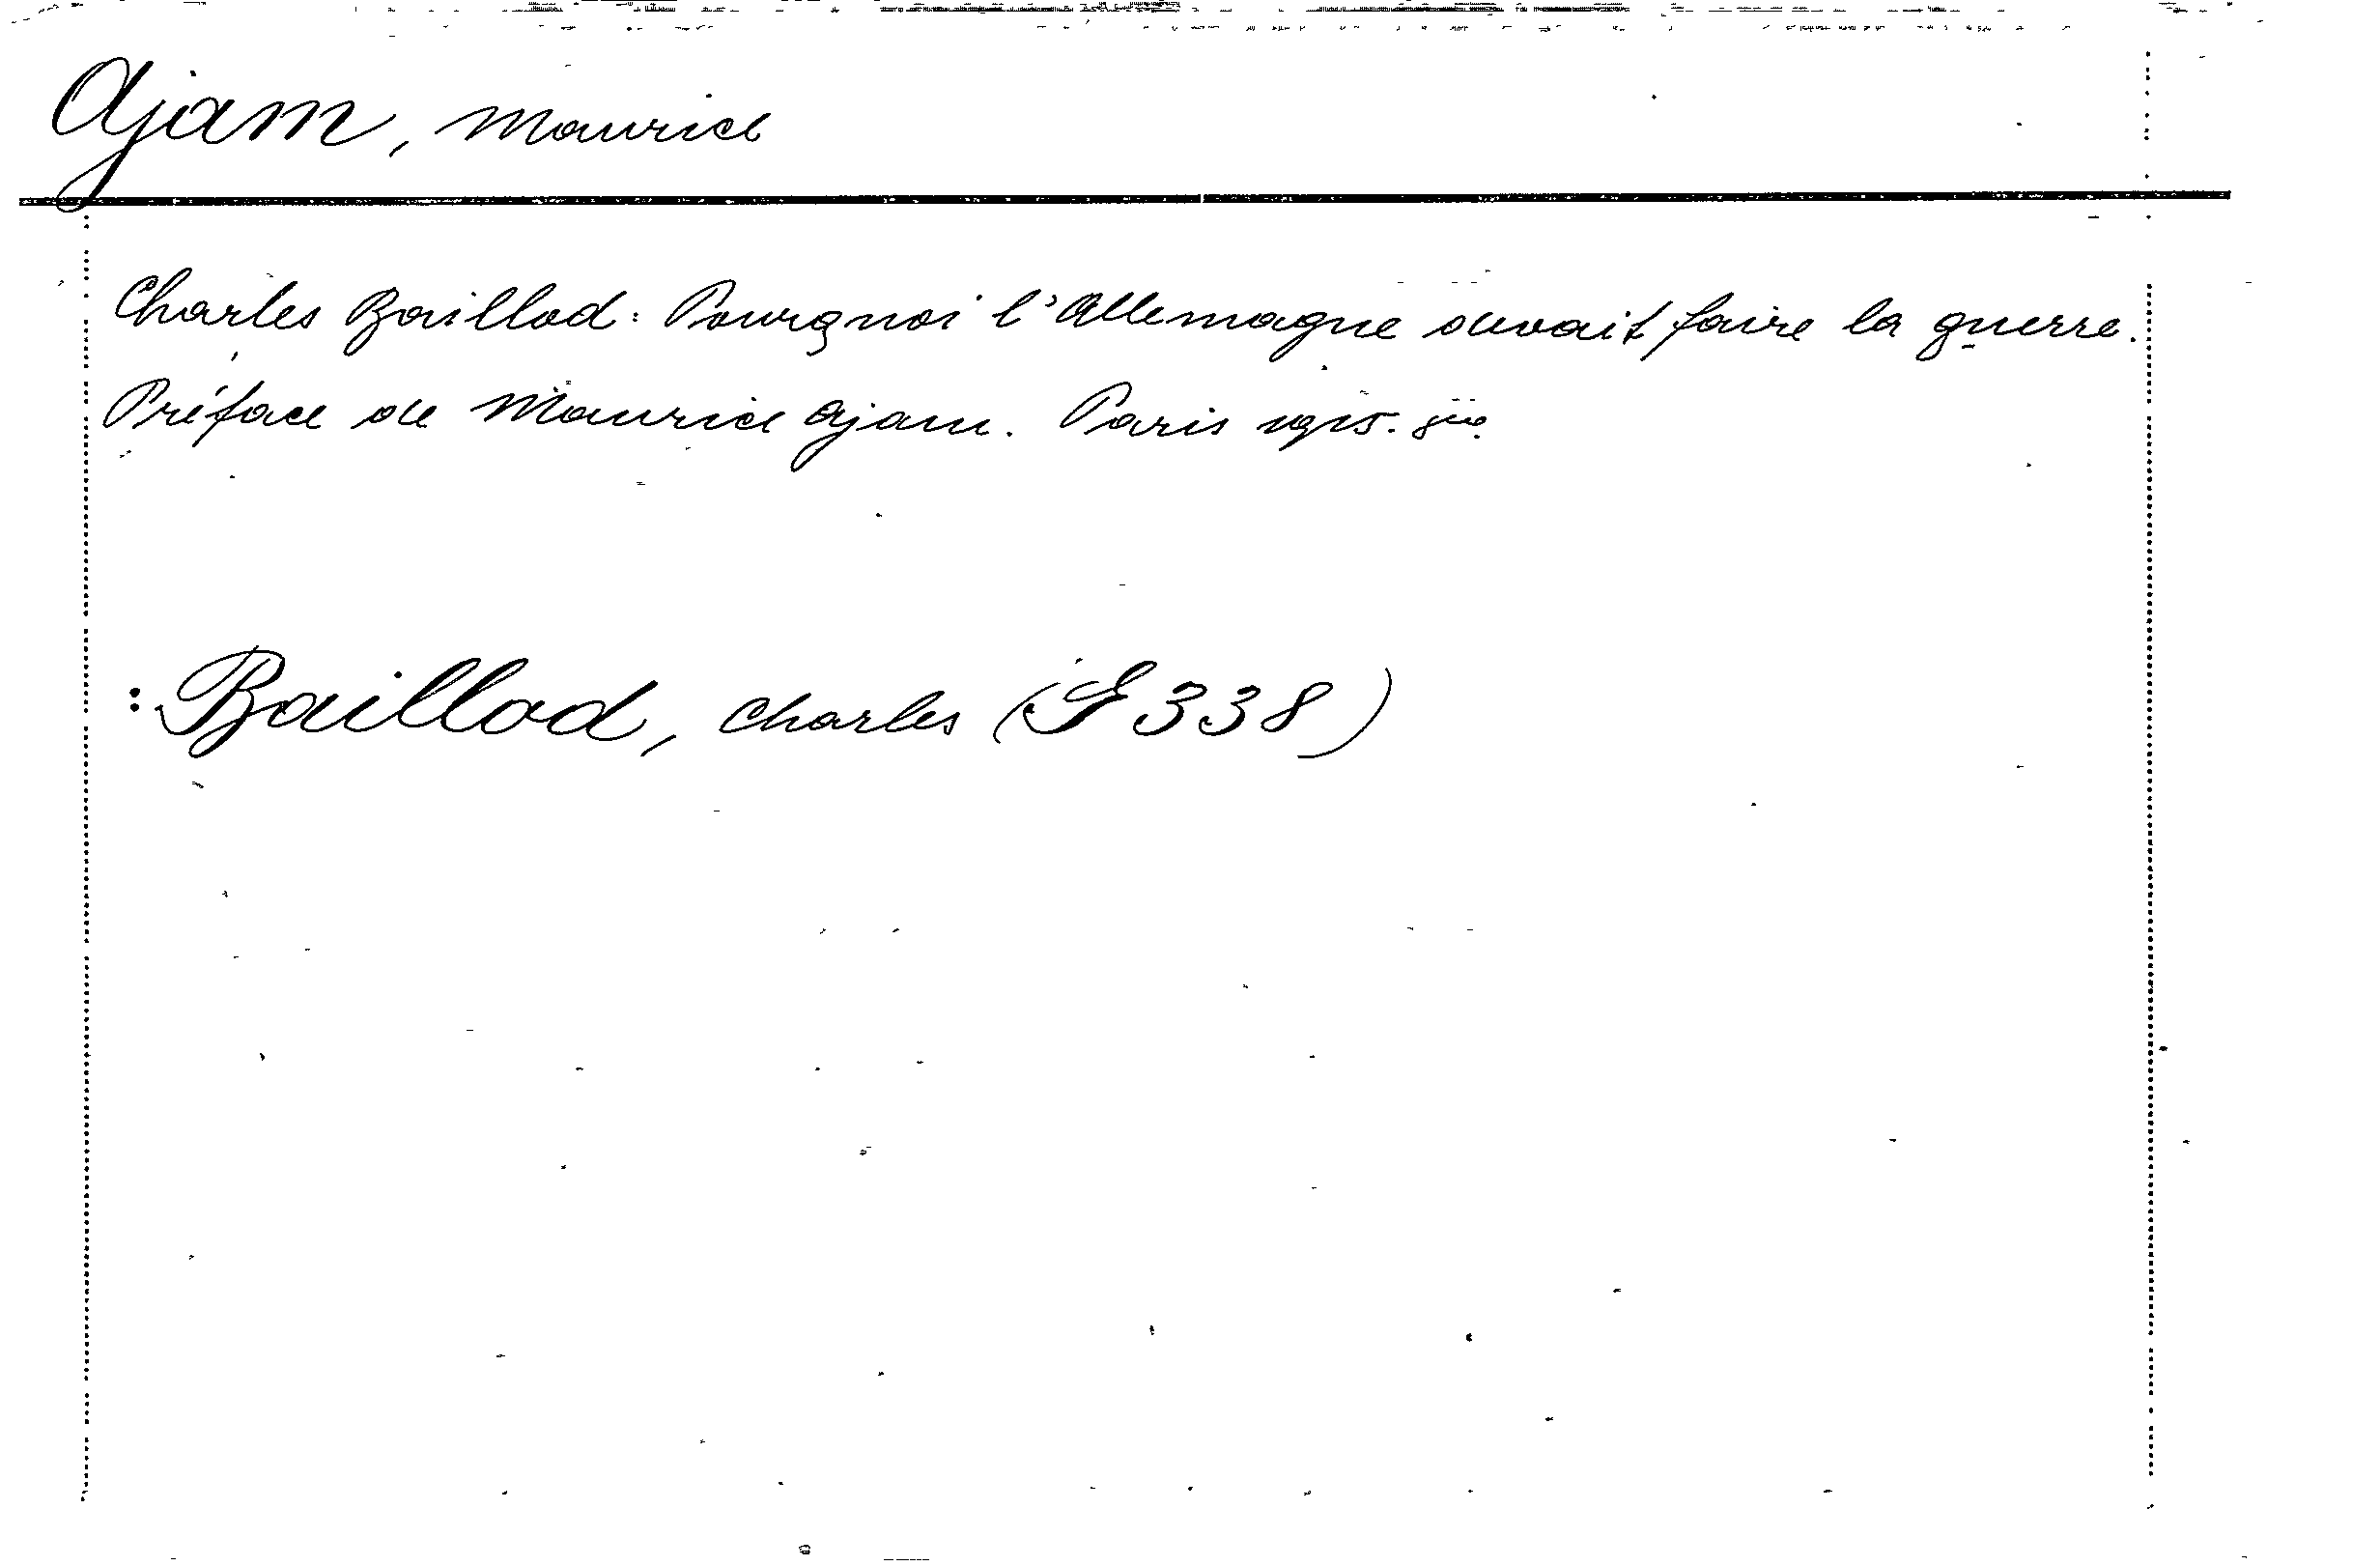 Ajam, Maurice
Charles Baillod: Pourquoi l'Allemagne devait faire la guerre.
Préface de Maurice Ajam. Paris 1915. 8vo.
: Baillod, Charles (G 338)